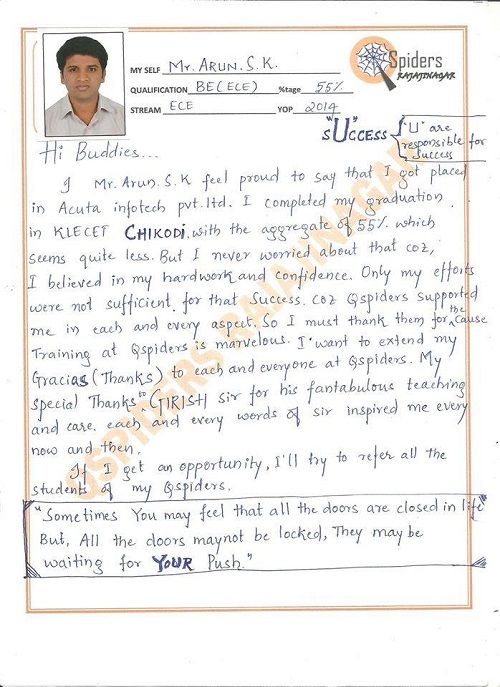 MY SELF Mr. ARUN. S. K.
Spiders
RAJAJINAGAR
QUALIFICATION BE(ECE) %tage 55%
STREAM ECE YOP 2014
"sUccess" "U" are
responsible for
success
Hi Buddies...
I Mr. Arun. S. K feel proud to say that I got placed
in Acuta infotech pvt. ltd. I completed my graduation
in KLECET CHIKODI, with the aggregate of 55%. which
seems quite less. But I never worried about that coz,
I believed in my hardwork and confidence. Only my efforts
were not sufficient for that Success. coz Qspiders supported
me in each and every aspect. So I must thank them for the cause
Training at Qspiders is marvelous. I want to extend my
Gracias (Thanks) to each and everyone at Qspiders. My
special Thanks to GIRISH sir for his fantabulous teaching
and care. each and every words of sir inspired me every
now and then.
If I get an opportunity, I'll try to refer all the
students of my Qspiders.
"Sometimes You may feel that all the doors are closed in life"
But, All the doors maynot be locked, They may be
waiting for YOUR Push."
QSPIDERS RAJAJINAGAR